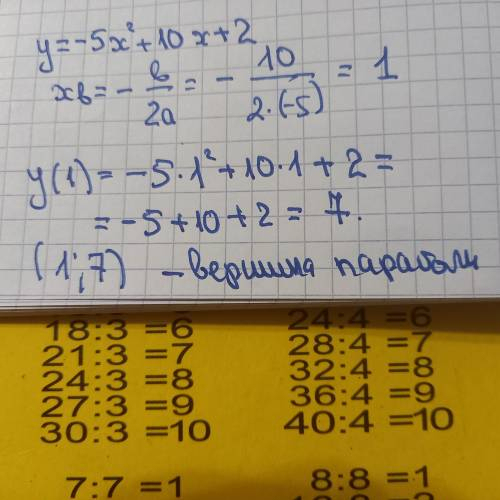 y = -5x² + 10x + 2
xв = - в/2a = - 10/2·(-5) = 1
y(1) = -5·1² + 10·1 + 2 =
= -5 + 10 + 2 = 7.
(1;7) - вершина параболы
18:3 =6 24:4 =6
21:3 =7 28:4 =7
24:3 =8 32:4 =8
27:3 =9 36:4 =9
30:3 =10 40:4 =10
7:7 =1 8:8 =1